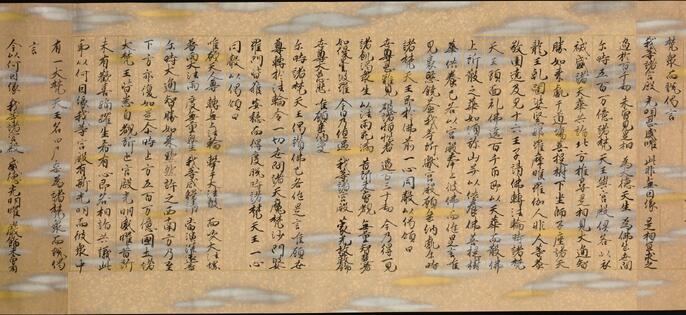 梵眾而說偈言
我等諸宮殿 光明甚威曜 此非無因緣 是相宜求之
過於百千劫 未曾見是相 為大德天生 為佛出世間
爾時五百萬億諸梵天王與宮殿俱各以衣
裓盛諸天華共詣北方推尋是相見大通智
勝如來處于道場菩提樹下坐師子座諸天
龍王乾闥婆緊那羅摩睺羅伽人非人等恭
敬圍遶及見十六王子請佛轉法輪時諸梵
天王頭面禮佛遶百千匝即以天華而散佛
上所散之華如須彌山并以供養佛菩提樹
華供養已各以宮殿奉上彼佛而作是言唯
見哀愍饒益我等所獻宮殿願垂納處爾時
諸梵天王即於佛前一心同聲以偈頌曰
世尊甚難見 破諸煩惱者 過百三十劫 今乃得一見
諸飢渴眾生 以法雨充滿 昔所未曾覩 無量智慧者
如優曇鉢羅 今日乃值遇 我等諸宮殿 蒙光故嚴飾
世尊大慈愍 唯願垂納受
爾時諸梵天王偈讚佛已各作是言唯願世
尊轉於法輪令一切世間諸天魔梵沙門婆
羅門皆獲安隱而得度脫時諸梵天王一心
同聲以偈頌曰
唯願天人尊 轉無上法輪 擊于大法鼓 而吹大法螺
普雨大法雨 度無量眾生 我等咸歸請 當演深遠音
爾時大通智勝如來默然許之西南方乃至
下方亦復如是爾時上方五百萬億國土諸
大梵王皆悉自覩所止宮殿光明威曜昔所
未有歡喜踊躍生希有心即各相詣共議此
事以何因緣我等宮殿有斯光明而彼眾中
有一大梵天王名曰尸棄為諸梵眾而說偈
言
今以何因緣 我等諸宮殿 威德光明曜 嚴飾未曾有